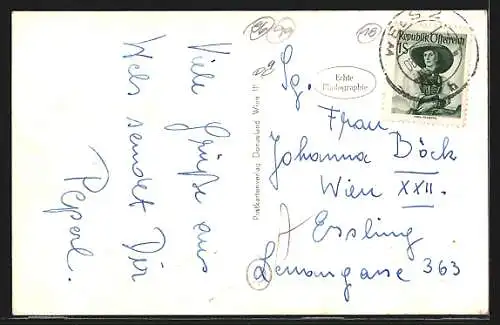 Viele Grüße aus
Wels sendet Dir
Peperl.
Postkartenverlag Donauland Wien III
Echte
Photographie
Republik Österreich
1S
Sg.
Frau
Johanna Böck
Wien XXII.
Essling
363